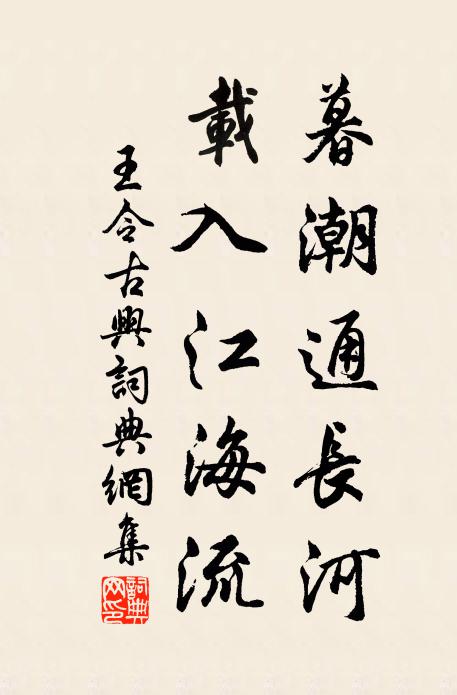 暮潮通長河
載入江海流
王令古興詞典網集
詞典網印